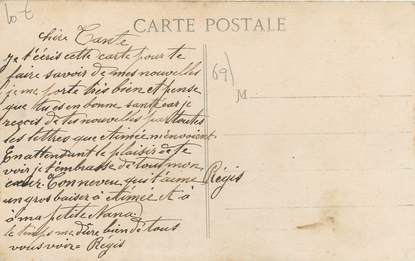 10 t
CARTE POSTALE
69)
M
Chère Tante
Je t'écris cette carte pour te
faire savoir de mes nouvelles
je me porte très bien et pense
que tu es en bonne santé car je
reçois de tes nouvelles par toutes
les lettres que Aimée m'envoient
En attendant le plaisir de te
voir je t'embrasse de tout mon
cœur Ton neveu qui t'aime Régis
un gros baiser à Aimée et à
à ma petite Nana
le temps me dure bien de tous
vous voire Régis